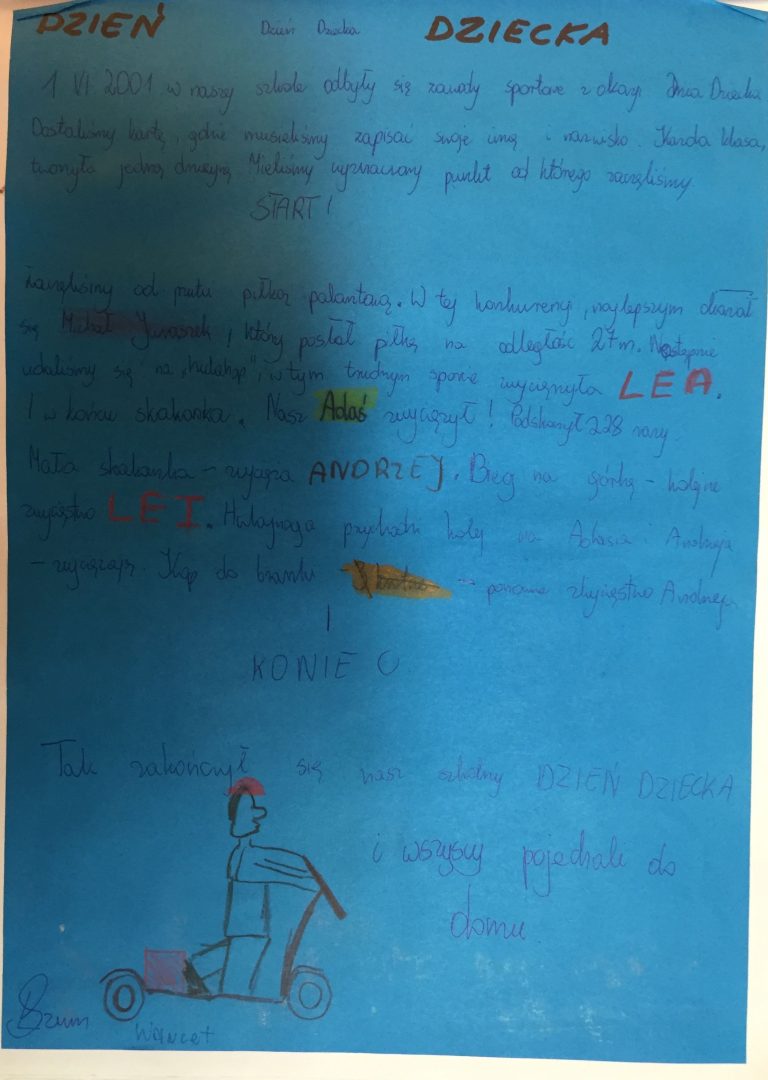 DZIEŃ Dzień Dziecka DZIECKA
1 VI 2001 w naszej szkole odbyły się zawody sportowe z okazji Dnia Dziecka
Dostaliśmy kartę, gdzie musieliśmy zapisać swoje imię i nazwisko. Każda klasa,
tworzyła jedną drużynę. Mieliśmy wyznaczony punkt od którego zaczęliśmy.
START!
Zaczęliśmy od rzutu piłką palantową. W tej konkurencji, najlepszym okazał
się Michał, który posłał piłkę na odległość 27 m. Następnie
udaliśmy się na „hulahop”, w tym trudnym sporcie zwyciężyła LEA.
I w końcu skakanka. Nasz Adaś zwyciężył! Podskoczył 228 razy.
Mała skakanka – zwycięża ANDRZEJ. Bieg na górkę – kolejne
zwycięstwo LEI. Hulajnoga przychodzi kolej na Adasia i Andrzeja
– zwyciężają. Kop do bramki – ponowne zwycięstwo Andrzeja.
I
KONIEC
Tak zakończył się nasz szkolny DZIEŃ DZIECKA
i wszyscy pojechali do
domu
Brum